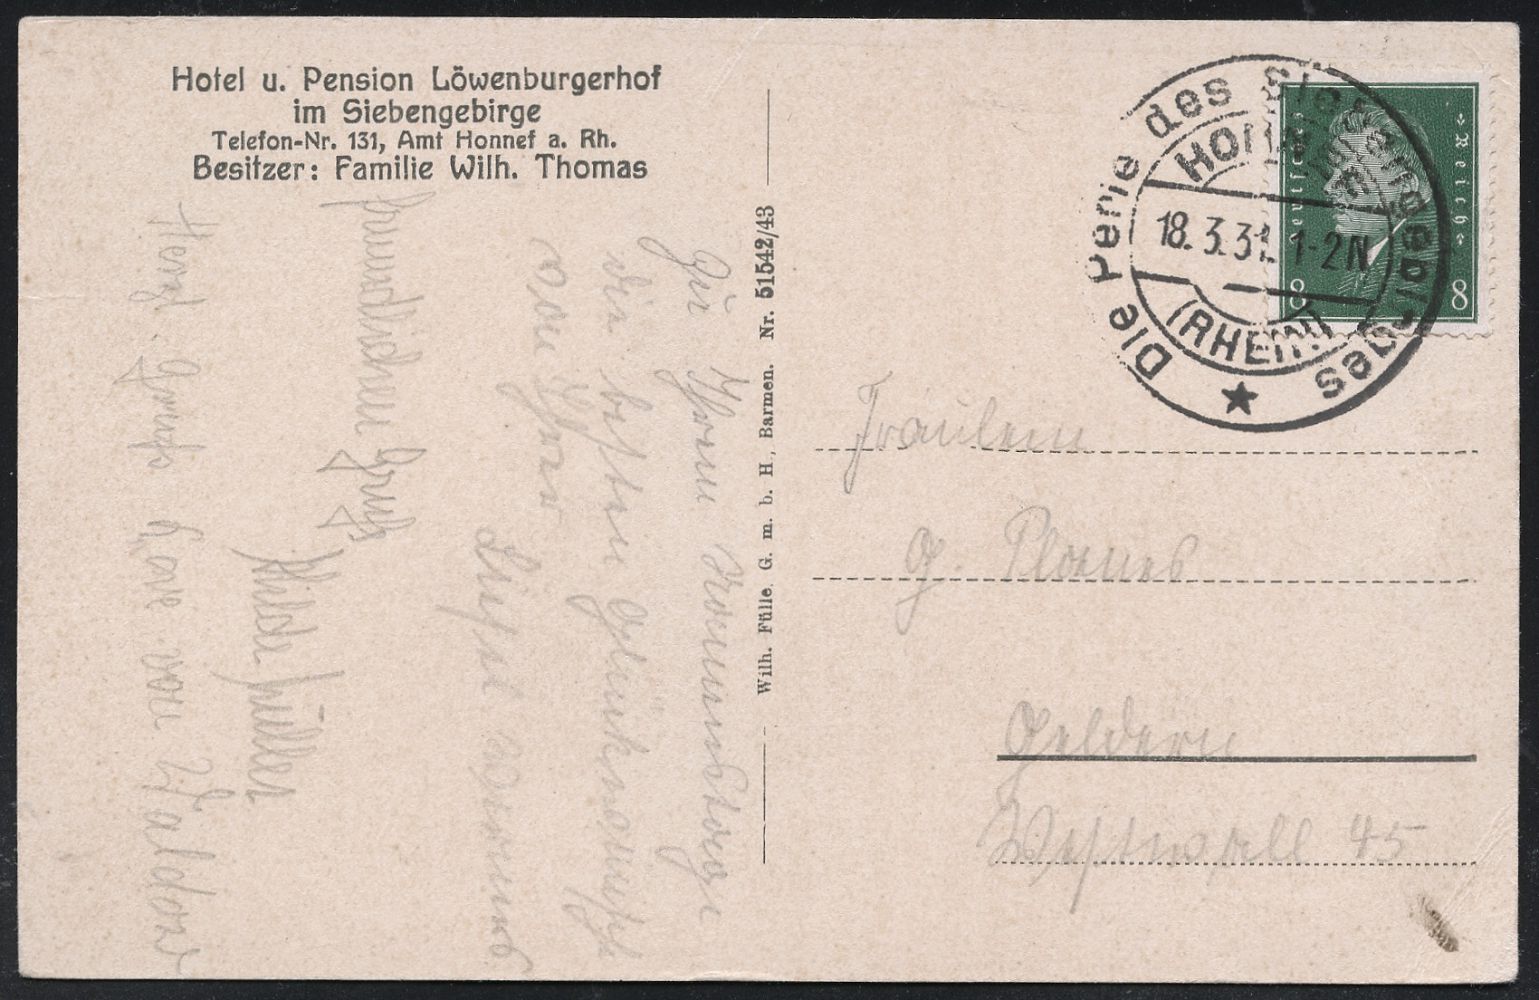 Hotel u. Pension Löwenburgerhof
im Siebengebirge
Telefon-Nr. 131, Amt Honnef a. Rh.
Besitzer: Familie Wilh. Thomas
Zu Ihrem Namenstage
die besten Glückwünsche
von Ihrer
freundlichen Gruß
Hilde Müller
Herzl. Grüße
von
Wilh. Fülle G. m. b. H., Barmen. Nr. 51542/43
Die Perle des Siebengebirges
HONNEF
18.3.31. 1-2N
(RHEIN)
Deutsches Reich
8
8
Fräulein
G.
Geldern
Westwall 45